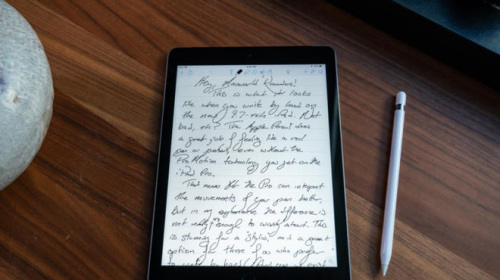 Hey, Macworld Readers!
This is what it looks
like when you write by hand on
the new 9.7-inch iPad. Not
bad, eh? The Apple Pencil does
a great job of feeling like a real
pen or pencil, even without the
ProMotion technology you get on the
iPad Pro.
That means the Pro can interpret
the movements of your pen better,
but in my experience the difference is
not really enough to worry about. This
is stunning for a stylus, and is a great
option for those of us who prefer
to write by hand. And